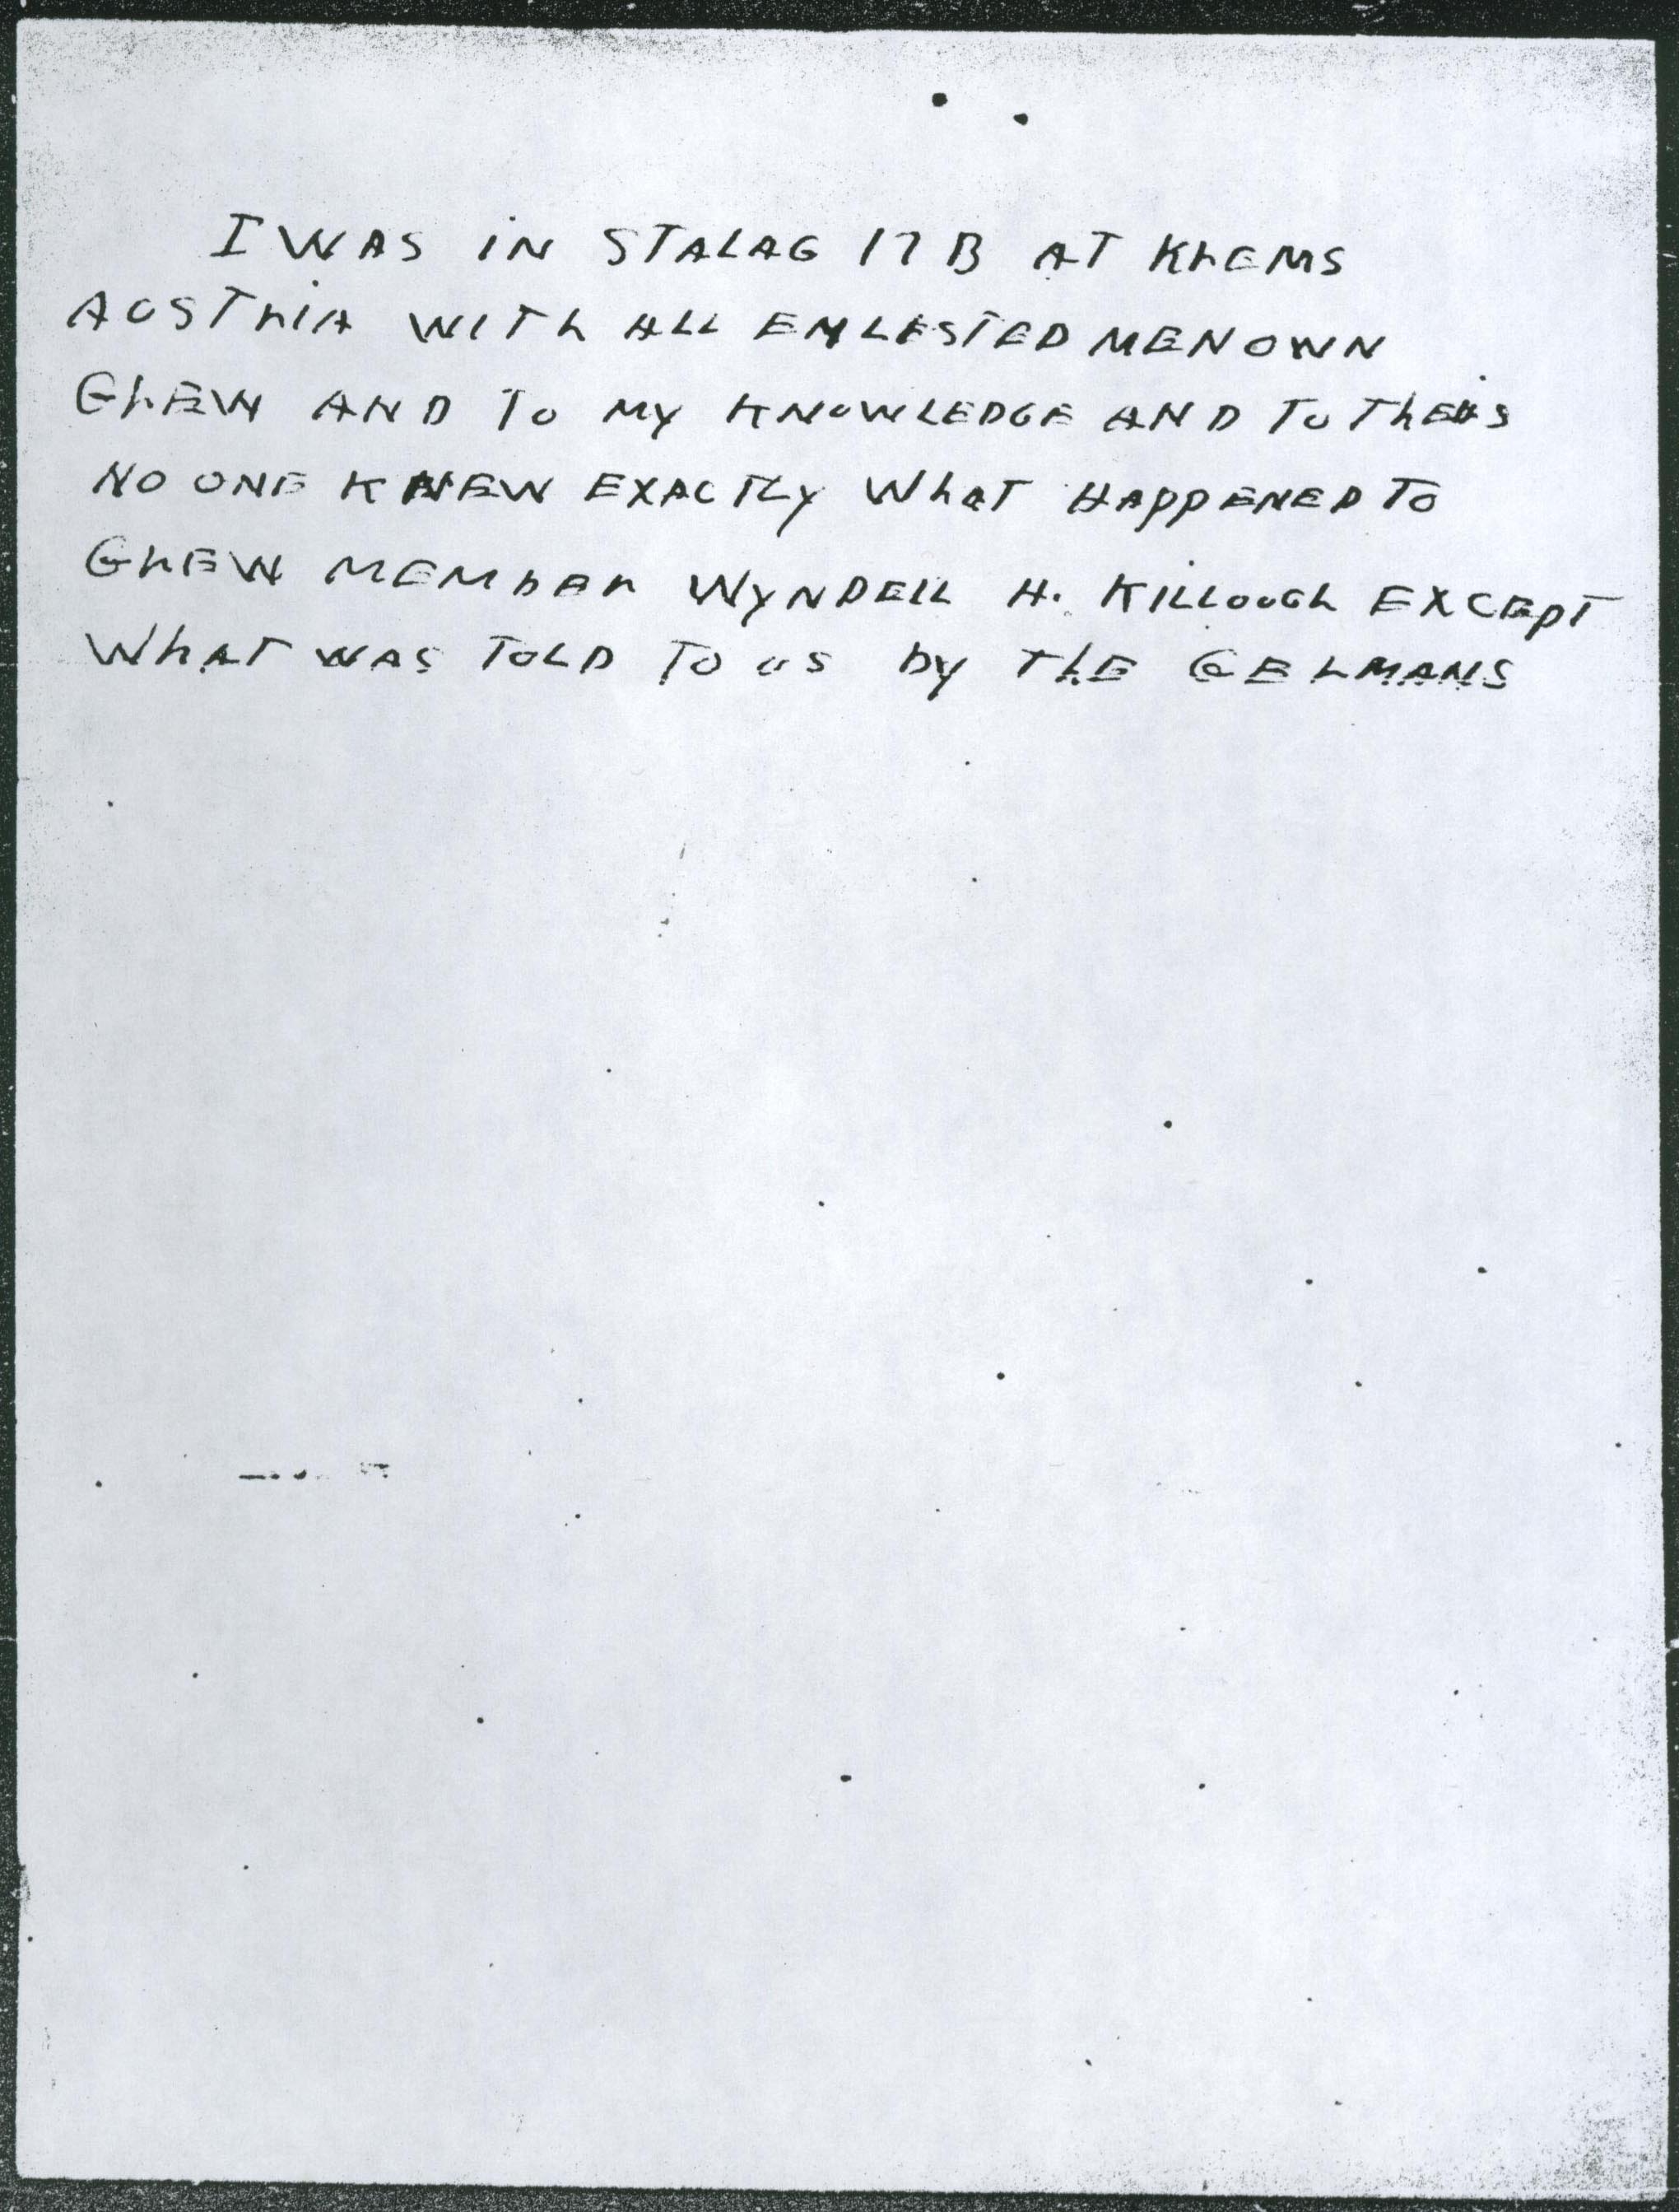 I WAS IN STALAG 17 B AT KREMS
AUSTRIA WITH ALL ENLESTED MEN OWN
CREW AND TO MY KNOWLEDGE AND TO THEIRS
NO ONE KNEW EXACTLY WHAT HAPPENED TO
CREW MEMBER WYNDELL H. KILLOUGH EXCEPT
WHAT WAS TOLD TO US BY THE GERMANS